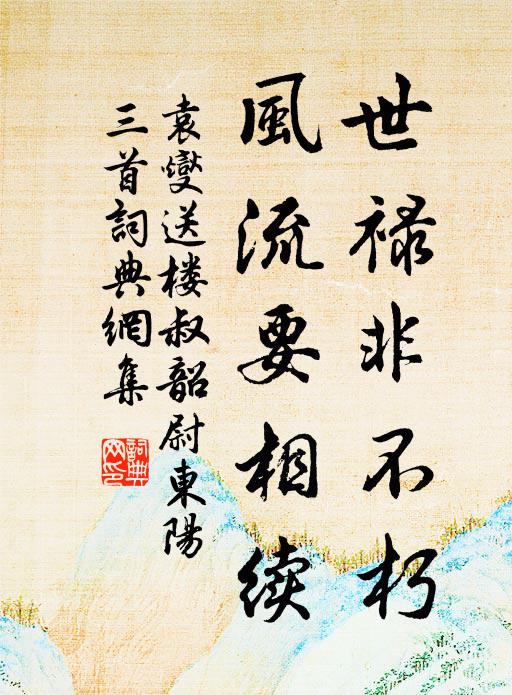 世禄非不朽
風流要相续
袁燮送楼叔韶尉東陽
三首詞典網集
詞典網印